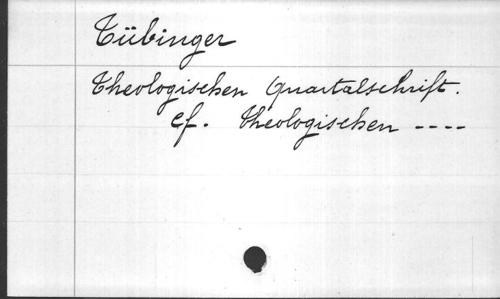 Tübinger
Theologischen Quartalschrift.
cf. Theologischen ----